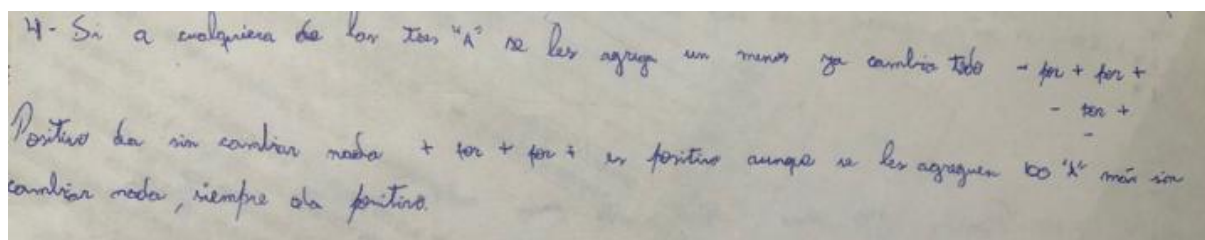 4- Si a cualquiera de los tres "A" se les agrega un menos ya cambia todo - por + por +
- por +
-
Positivo da sin cambiar nada + por + por + es positivo aunque se les agreguen 100 "A" más sin
cambiar nada, siempre da positivo.